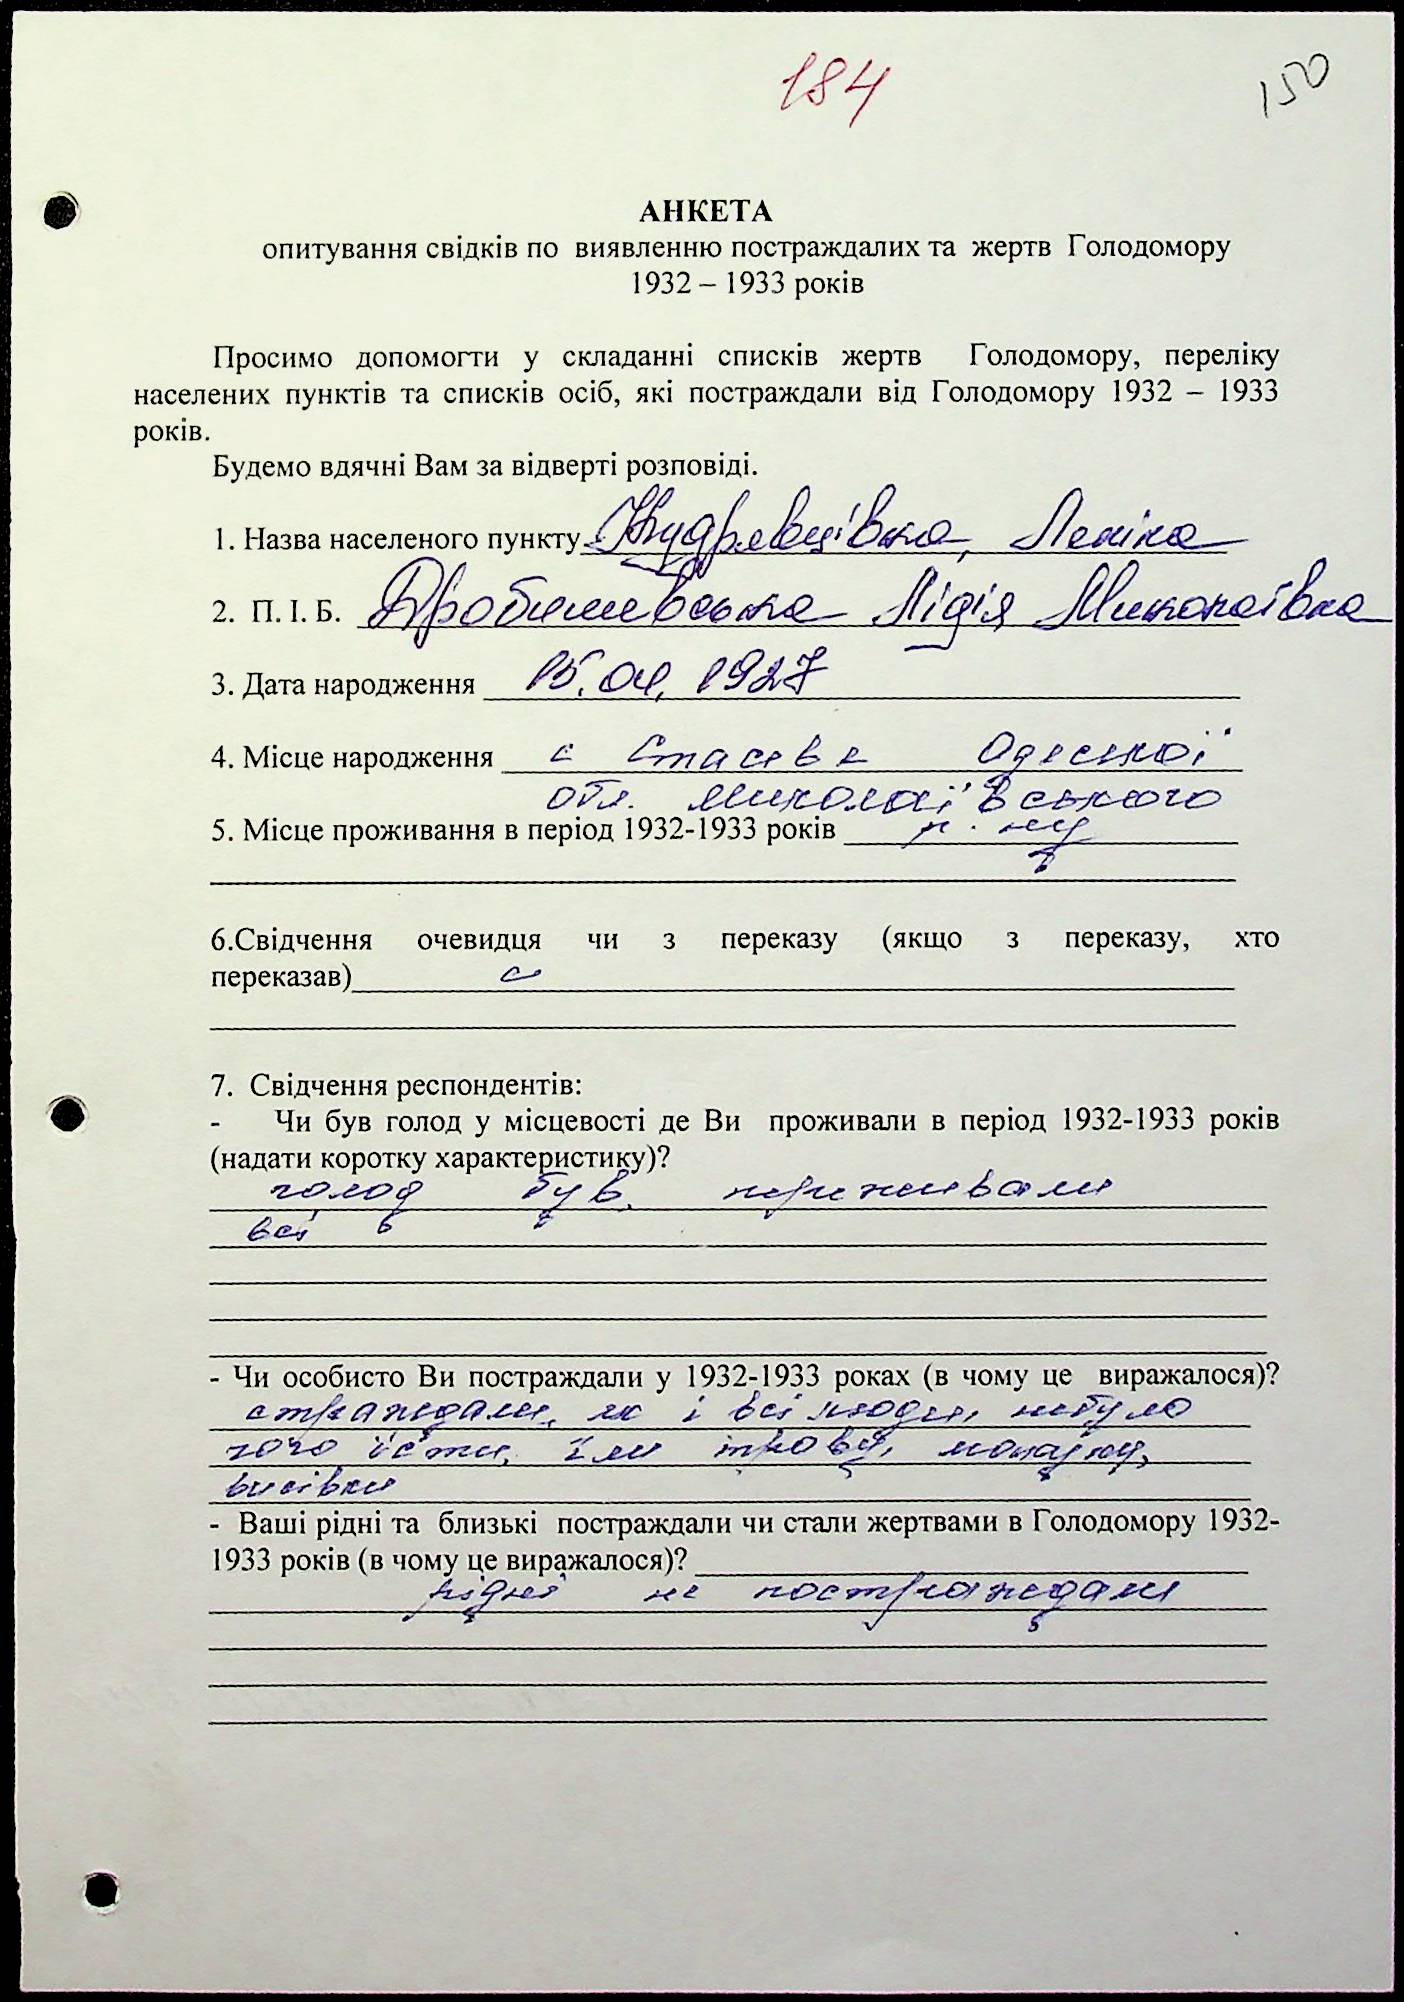 184
150
АНКЕТА
опитування свідків по виявленню постраждалих та жертв Голодомору
1932 – 1933 років
Просимо допомогти у складанні списків жертв Голодомору, переліку
населених пунктів та списків осіб, які постраждали від Голодомору 1932 – 1933
років.
Будемо вдячні Вам за відверті розповіді.
1. Назва населеного пункту Кудрявцівка, Леніна
2. П. І. Б. Дробишевська Лідія Миколаївна
3. Дата народження 15.04.1927
4. Місце народження с Одеської
обл. миколаївського
5. Місце проживання в період 1932-1933 років р. ну
6.Свідчення очевидця чи з переказу (якщо з переказу, хто
переказав)
7. Свідчення респондентів:
- Чи був голод у місцевості де Ви проживали в період 1932-1933 років
(надати коротку характеристику)?
голод був, переживали
всі
- Чи особисто Ви постраждали у 1932-1933 роках (в чому це виражалося)?
страждали, як і всі люди, небуло
чого їсти, їли траву, макуху,
висівки
- Ваші рідні та близькі постраждали чи стали жертвами в Голодомору 1932-
1933 років (в чому це виражалося)?
рідні не постраждали